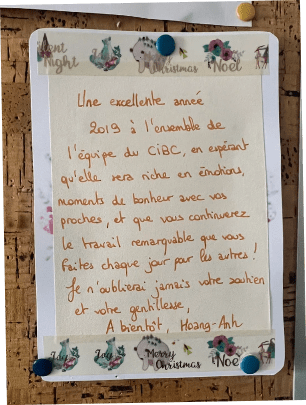 Silent Night
Christmas
Noël
Une excellente année
2019 à l'ensemble de
l'équipe du CIBC, en espérant
qu'elle sera riche en émotions,
moments de bonheur avec vos
proches, et que vous continuerez
le travail remarquable que vous
faites chaque jour pour les autres !
Je n'oublierai jamais votre soutien
et votre gentillesse,
A bientôt, Hoang-Anh
Joy
Joy
Merry Christmas
Noël